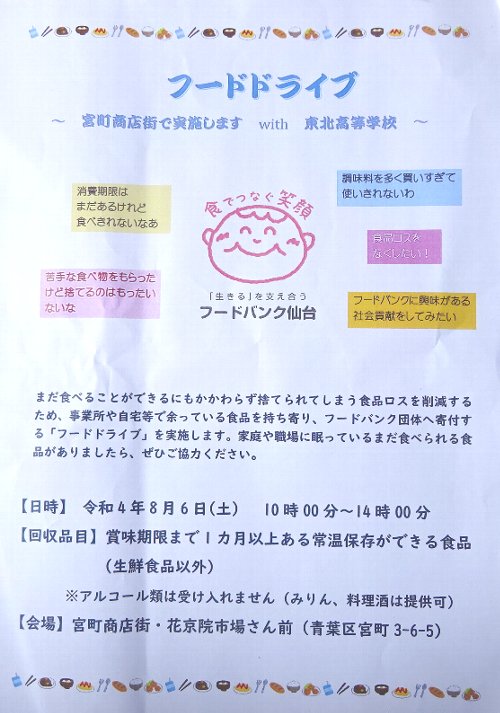 フードドライブ
～ 宮町商店街で実施します with 東北高等学校 ～
消費期限は
まだあるけれど
食べきれないなあ
食でつなぐ笑顔
調味料を多く買いすぎて
使いきれないわ
食品ロスを
なくしたい！
苦手な食べ物をもらった
けど捨てるのはもったい
ないな
「生きる」を支え合う
フードバンク仙台
フードバンクに興味がある
社会貢献をしてみたい
まだ食べることができるにもかかわらず捨てられてしまう食品ロスを削減する
ため、事業所や自宅等で余っている食品を持ち寄り、フードバンク団体へ寄付す
る「フードドライブ」を実施します。家庭や職場に眠っているまだ食べられる食
品がありましたら、ぜひご協力ください。
【日時】 令和４年８月６日(土) １０時００分～１４時００分
【回収品目】賞味期限まで１カ月以上ある常温保存ができる食品
（生鮮食品以外）
※アルコール類は受け入れません（みりん、料理酒は提供可）
【会場】宮町商店街・花京院市場さん前（青葉区宮町3-6-5）